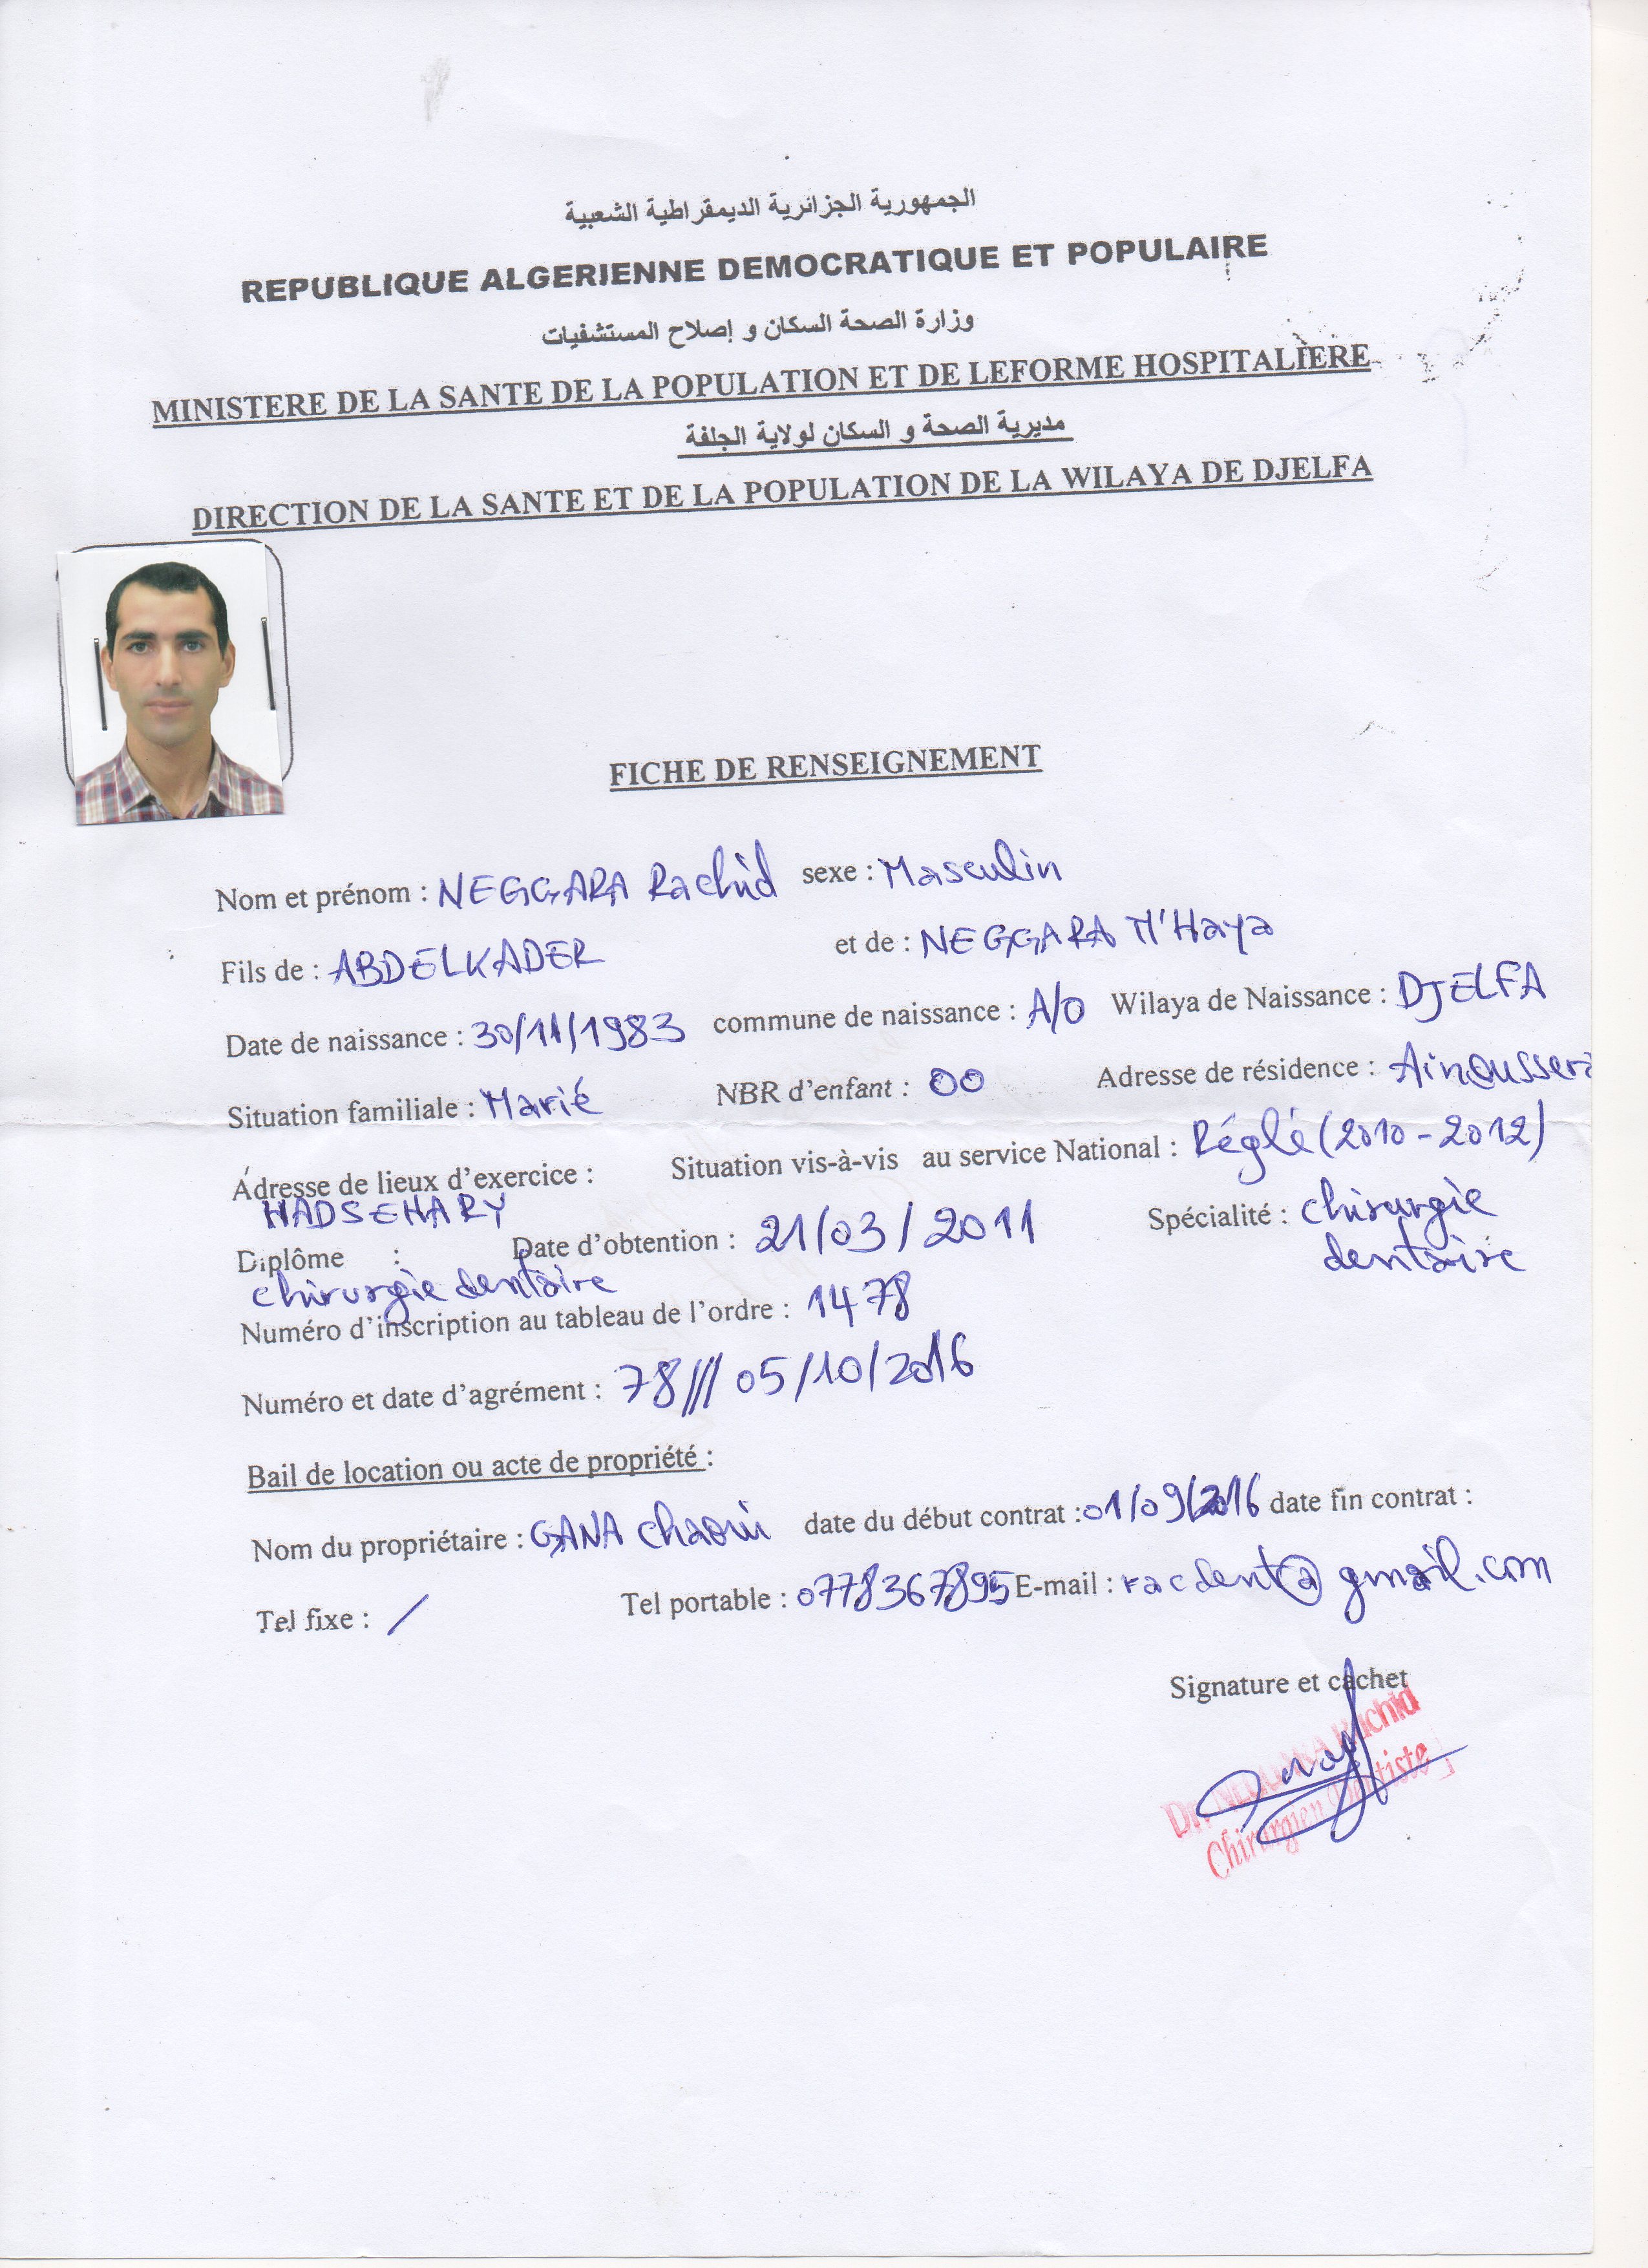 الجمهورية الجزائرية الديمقراطية الشعبية
REPUBLIQUE ALGERIENNE DEMOCRATIQUE ET POPULAIRE
وزارة الصحة السكان و إصلاح المستشفيات
MINISTERE DE LA SANTE DE LA POPULATION ET DE LEFORME HOSPITALIERE
مديرية الصحة و السكان لولاية الجلفة
DIRECTION DE LA SANTE ET DE LA POPULATION DE LA WILAYA DE DJELFA
FICHE DE RENSEIGNEMENT
Nom et prénom : NEGGARA Rachid sexe : Masculin
Fils de : ABDELKADER et de : NEGGARA M'Haya
Date de naissance : 30/11/1983 commune de naissance : A/O Wilaya de Naissance : DJELFA
Situation familiale : Marié NBR d'enfant : 00 Adresse de résidence : Ainoussera
Adresse de lieux d'exercice : Situation vis-à-vis au service National : Réglé (2010-2012)
HADSEHARY
Diplôme : Date d'obtention : 21/03/2011 Spécialité : chirurgie
chirurgie dentaire dentaire
Numéro d'inscription au tableau de l'ordre : 1478
Numéro et date d'agrément : 78/// 05/10/2016
Bail de location ou acte de propriété :
Nom du propriétaire : GANA date du début contrat : 01/09/2016 date fin contrat :
Tel fixe : / Tel portable : 0778367895 E-mail : racdent@gmail.com
Signature et cachet
Dr. NEGGARA Rachid
Chirurgien Dentiste